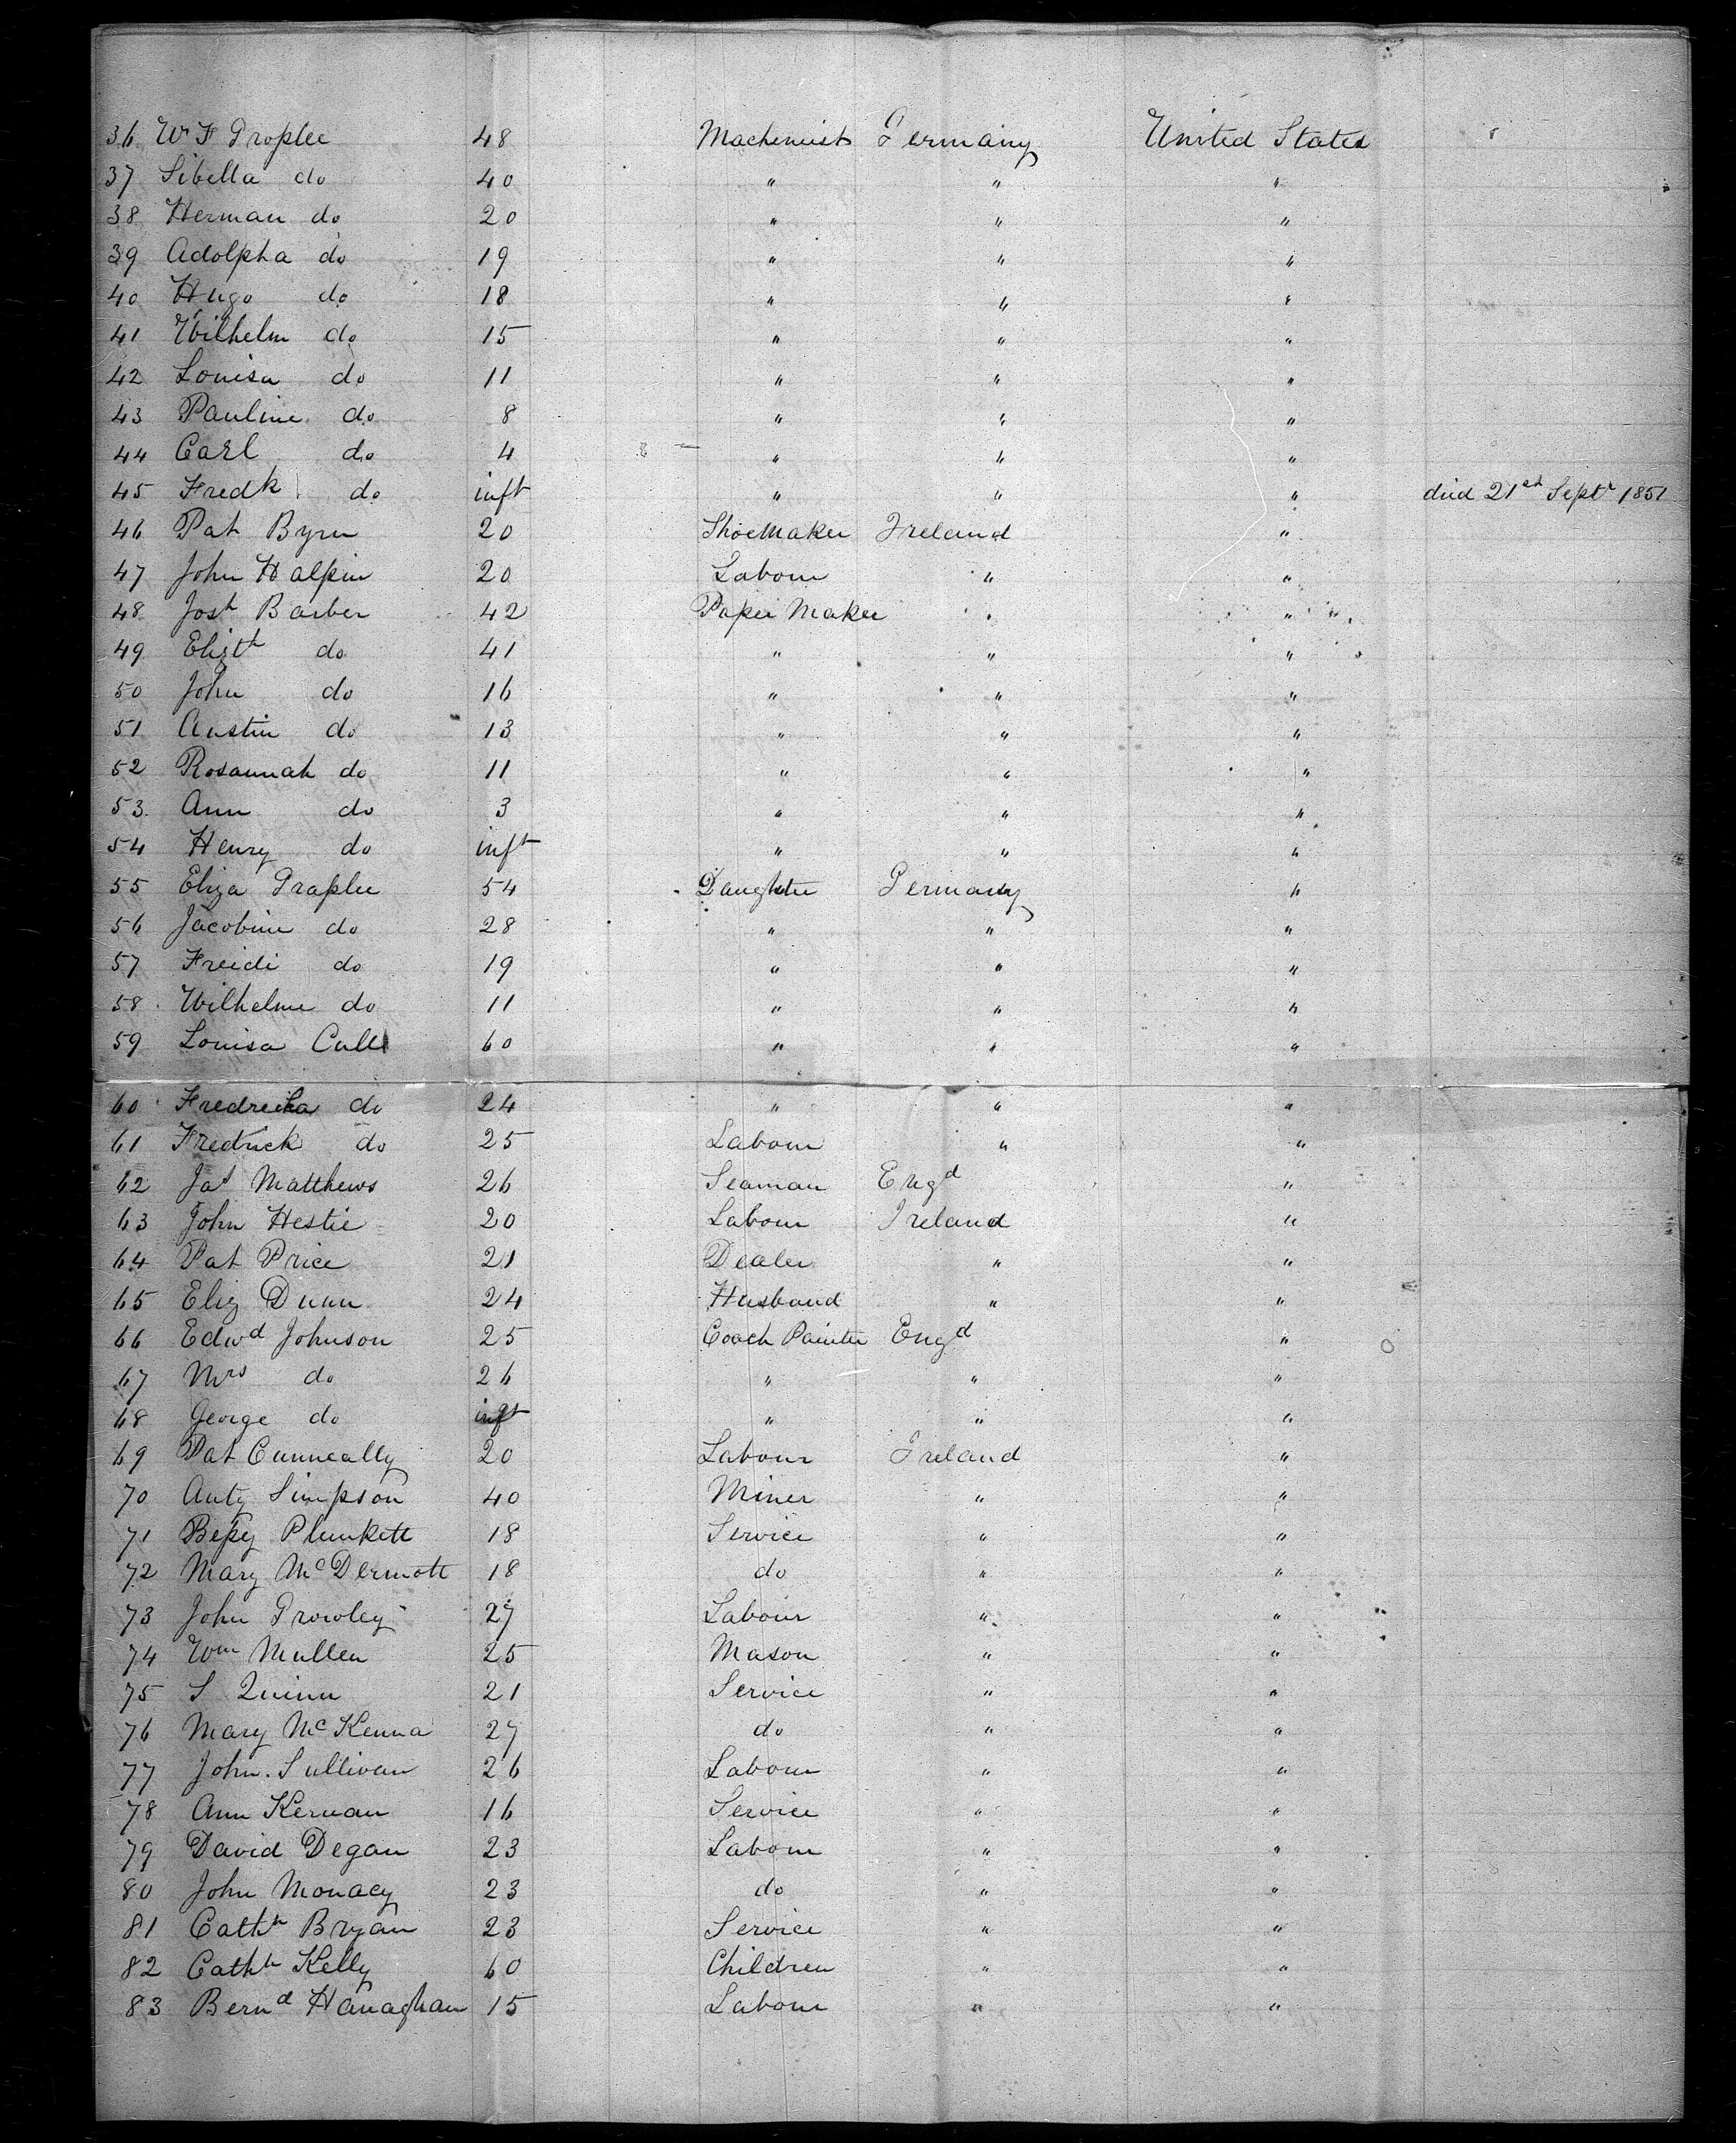 36 Wm F Proplee 48 Machenist Germany United States
37 Sibella do 40 " " "
38 Herman do 20 " " "
39 Adolpha do 19 " " "
40 Hugo do 18 " " "
41 Wilhelm do 15 " " "
42 Louisa do 11 " " "
43 Pauline do 8 " " "
44 Carl do 4 " " "
45 Fredk do inft " " " died 21st Septr 1851
46 Pat Byrn 20 Shoemaker Ireland "
47 John Halpin 20 Labour " "
48 Josh Barber 42 Paper Maker " "
49 Elizth do 41 " " "
50 John do 16 " " "
51 Austin do 13 " " "
52 Rosannah do 11 " " "
53 Ann do 3 " " "
54 Henry do inft " " "
55 Eliza Praplee 54 Daughter Germany "
56 Jacobine do 28 " " "
57 Freidi do 19 " " "
58 Wilhelme do 11 " " "
59 Louisa Cull 60 " " "
60 Fredreika do 24 " " "
61 Fredrick do 25 Labour " "
62 Jas Matthews 26 Seaman Engd "
63 John Hestie 20 Labour Ireland "
64 Pat Price 21 Dealer " "
65 Eliz Dunn 24 Husband " "
66 Edwd Johnson 25 Coach Painter Engd "
67 Mrs do 26 " " "
68 George do inft " " "
69 Pat Cunneally 20 Labour Ireland "
70 Anty Simpson 40 Miner " "
71 Bessy Plunkett 18 Service " "
72 Mary McDermott 18 do " "
73 John Prowley 27 Labour " "
74 Wm Mullen 25 Mason " "
75 S Quinn 21 Service " "
76 Mary McKenna 27 do " "
77 John Sullivan 26 Labour " "
78 Ann Kernan 16 Service " "
79 David Degan 23 Labour " "
80 John Monacy 23 do " "
81 Cathh Bryan 23 Service " "
82 Cathh Kelly 60 Children " "
83 Bernd Hanaghan 15 Labour " "